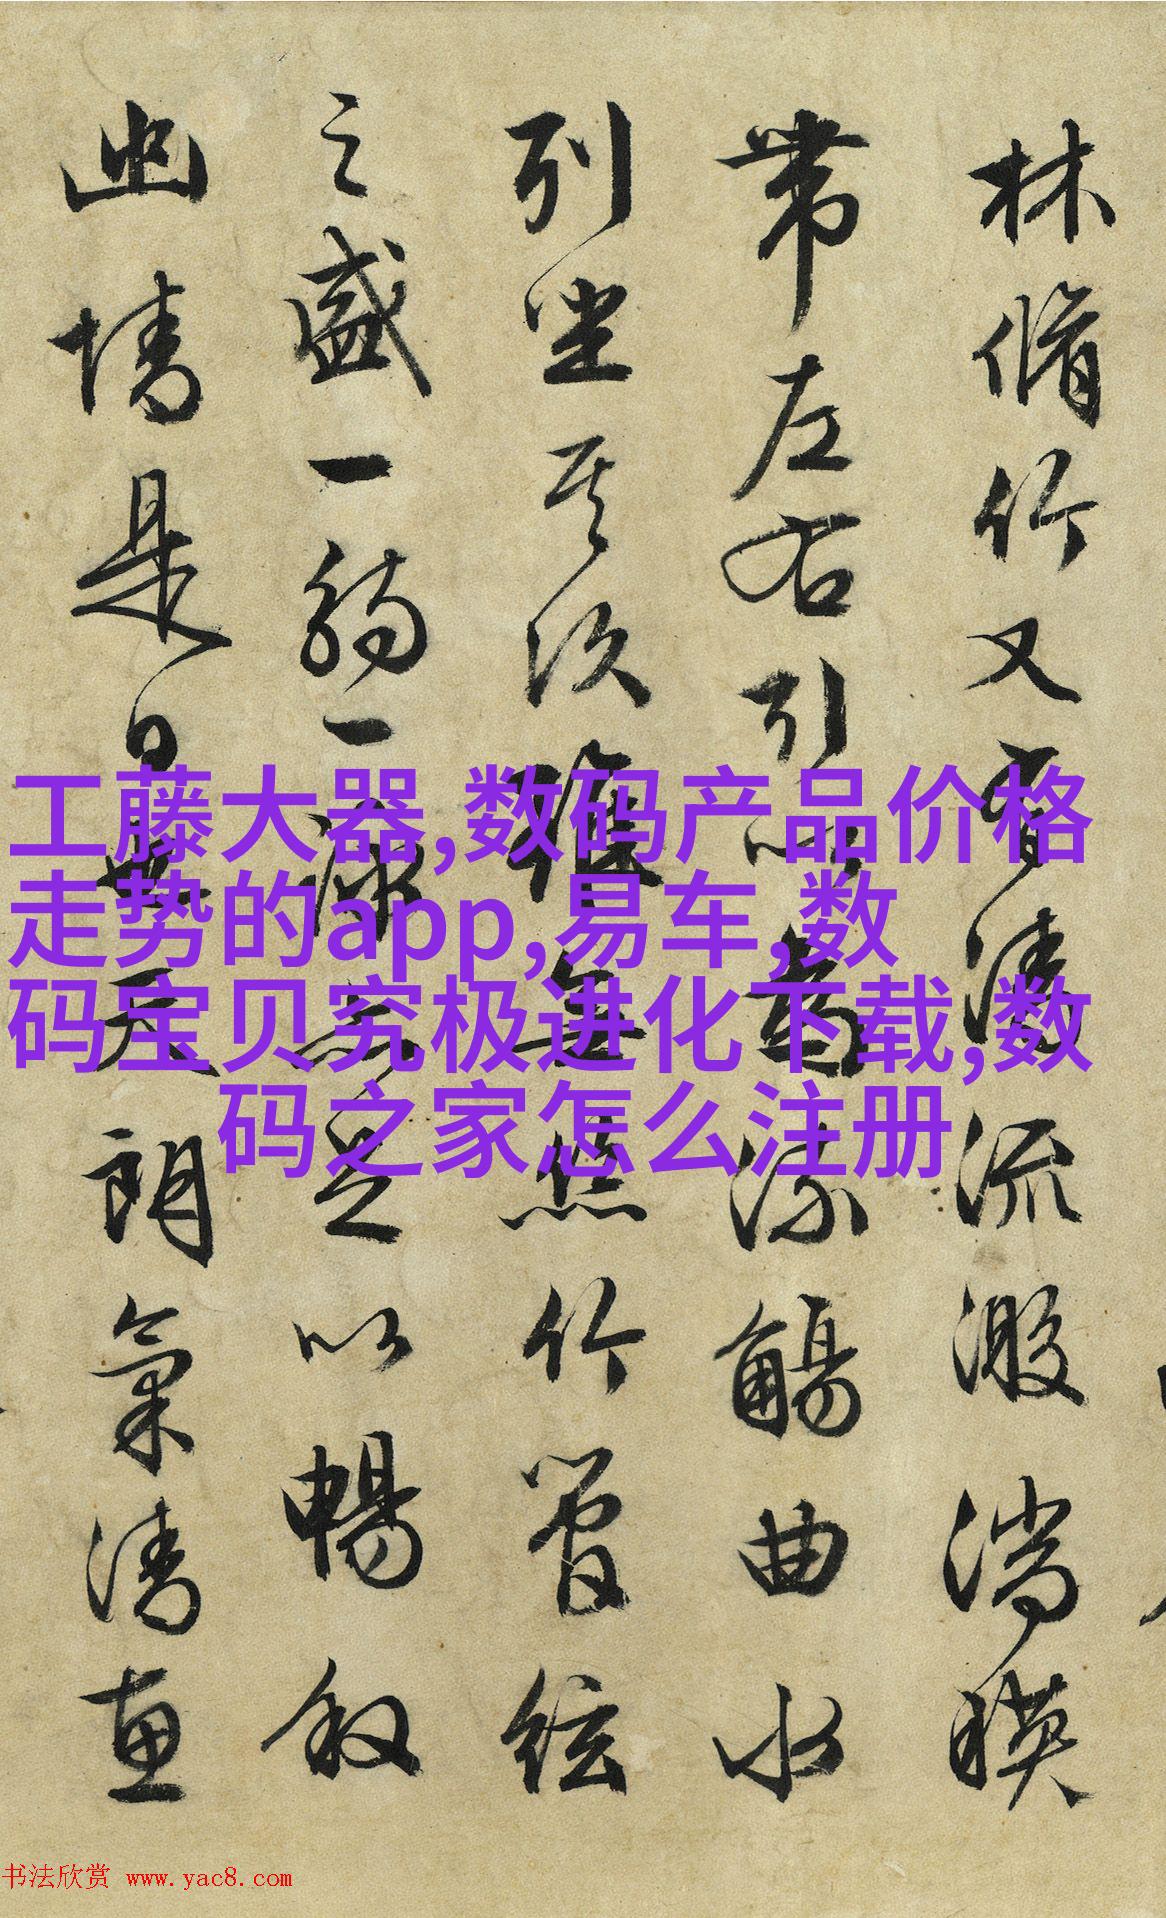 林脩竹又有清流激湍暎
帶左右引以為流觴曲水
列坐其次雖無絲竹管絃
之盛一觴一詠亦足以暢敘
幽情是日也天朗氣清惠
工藤大器,数码产品价格
走势的app,易车,数
码宝贝究极进化下载,数
码之家怎么注册
书法欣赏 www.yac8.com